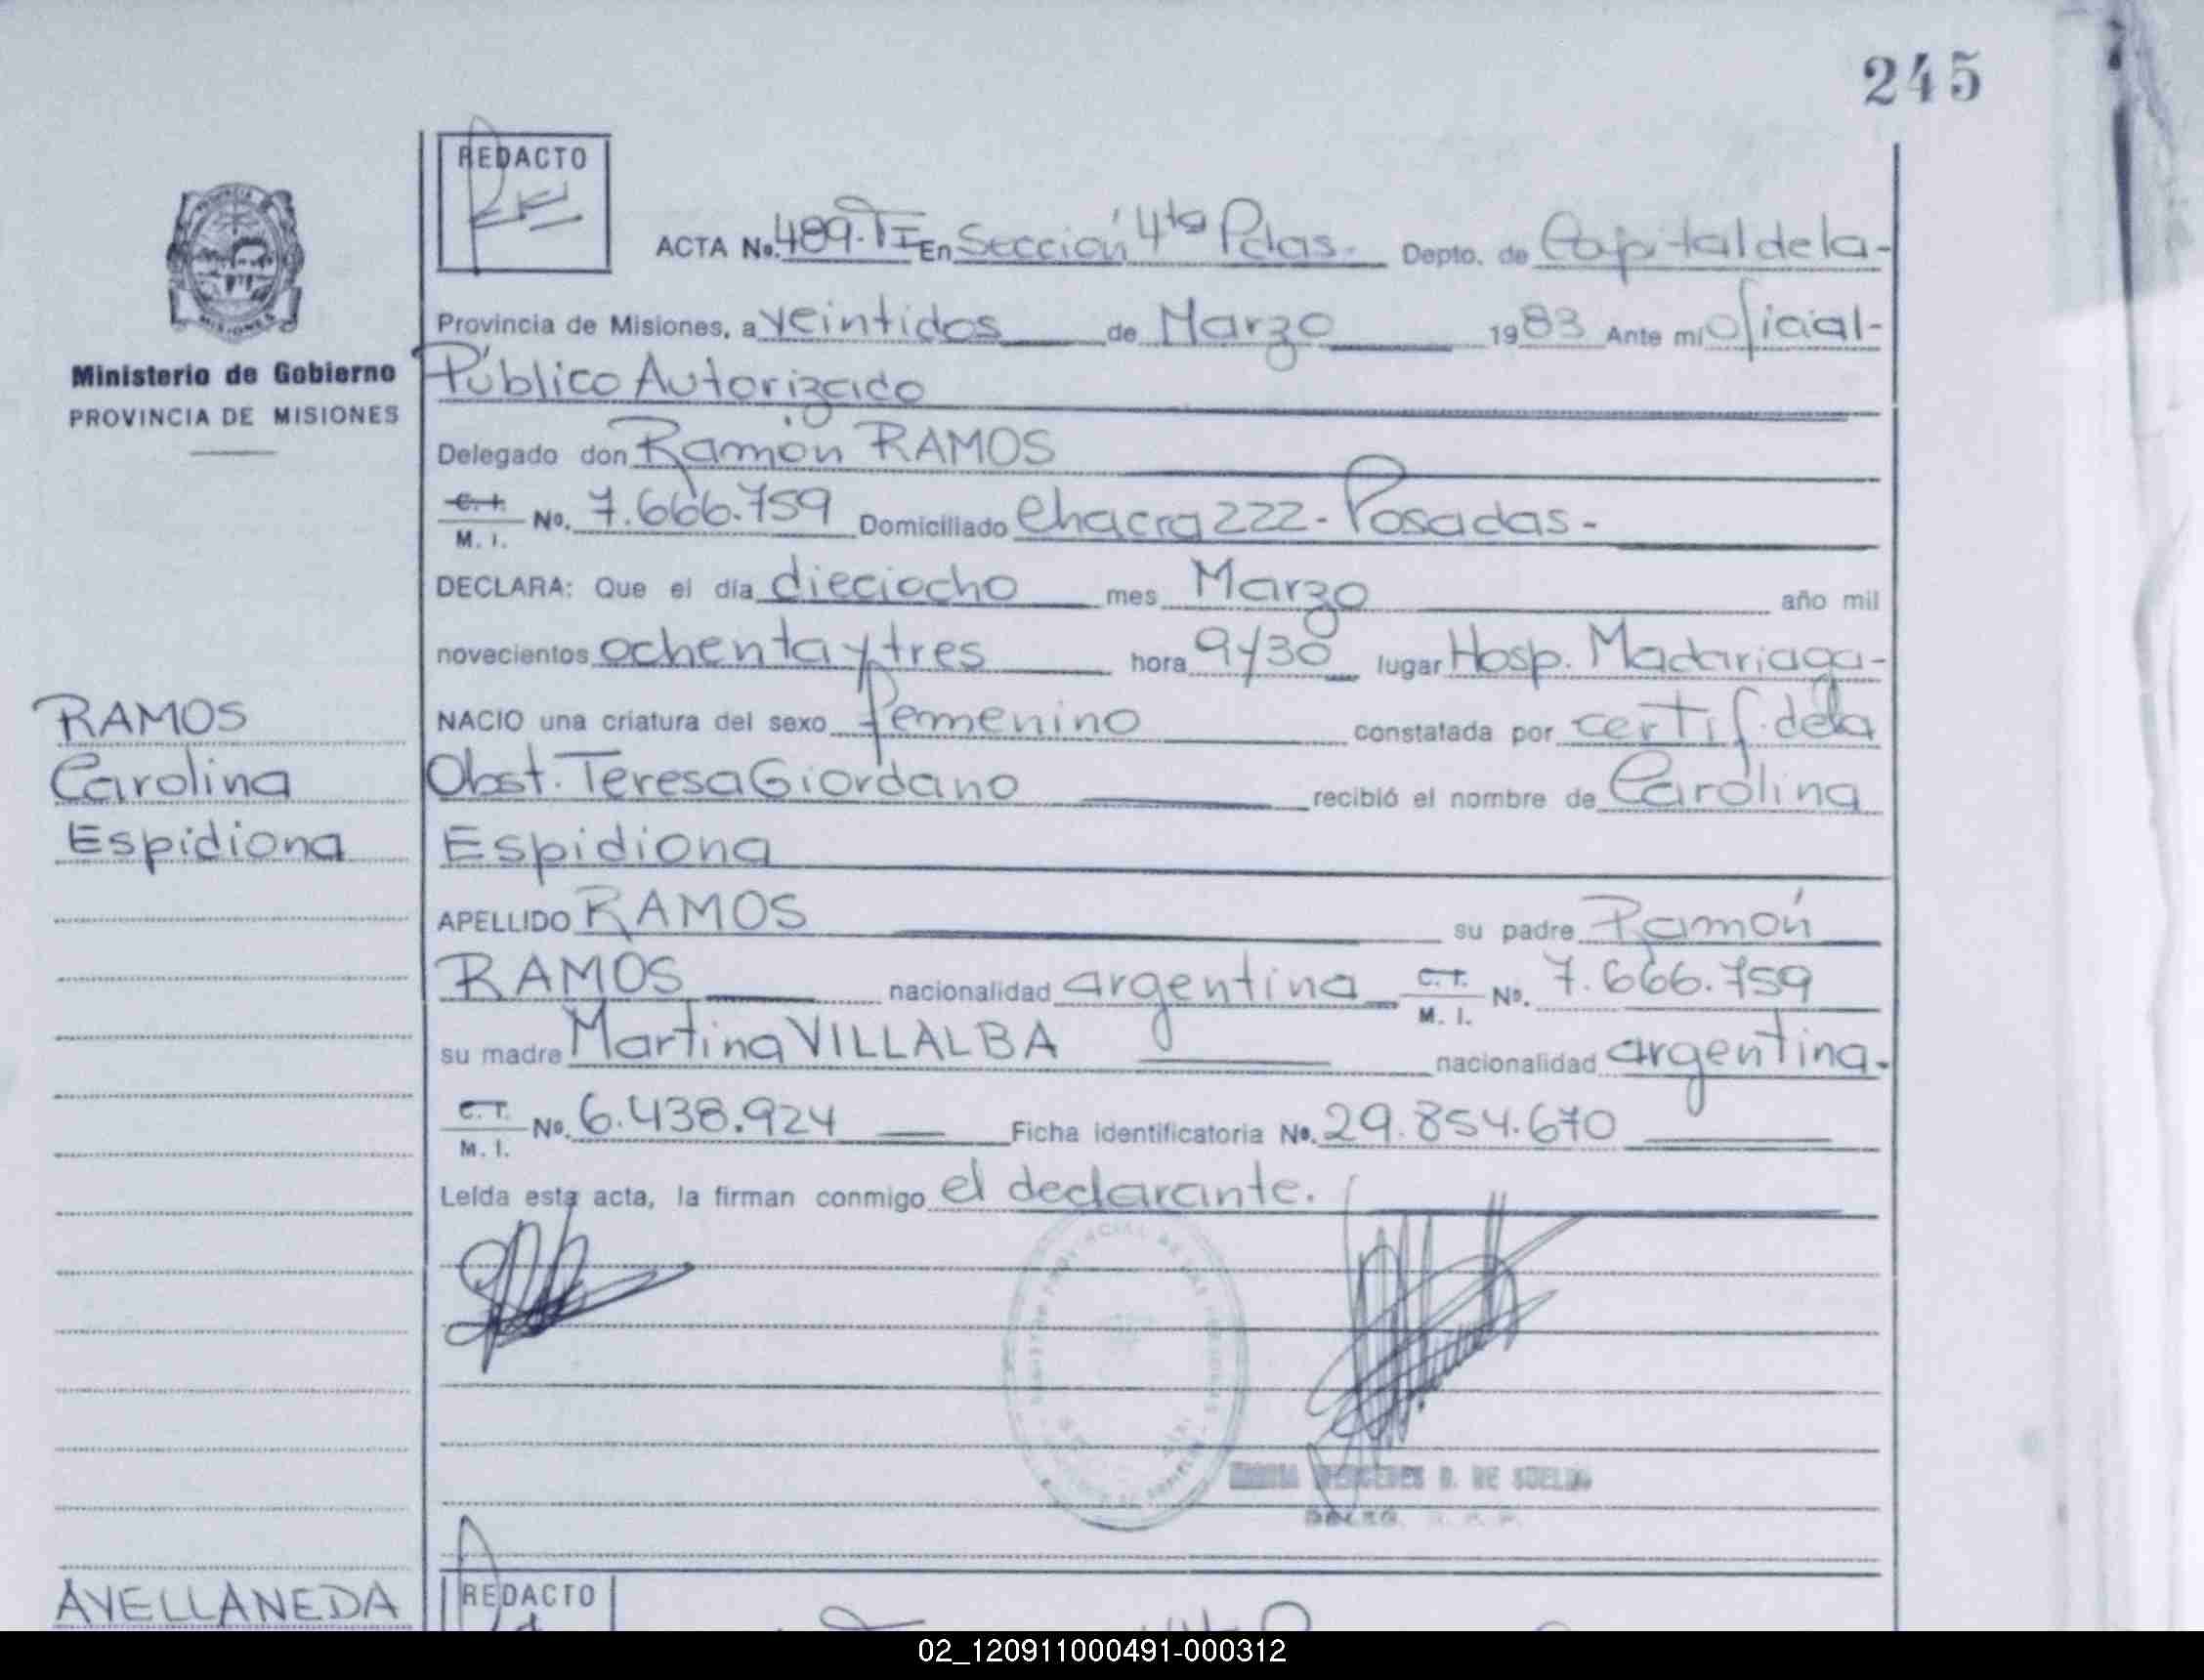 245
REDACTO
ACTA No. 489. TI En Sección 4ta Pdas. Depto. de Capital de la-
Provincia de Misiones, a veintidos de Marzo 1983 Ante mi oficial-
Ministerio de Gobierno
Público Autorizado
PROVINCIA DE MISIONES
Delegado don Ramón RAMOS
C. I. M. I. No. 7.666.759 Domiciliado Chacra 222 - Posadas -
DECLARA: Que el día dieciocho mes Marzo año mil
novecientos ochenta y tres hora 9y30 lugar Hosp. Madariaga-
RAMOS
NACIO una criatura del sexo femenino constatada por certif. dela
Carolina
Obst. Teresa Giordano recibió el nombre de Carolina
Espidiona
Espidiona
APELLIDO RAMOS su padre Ramón
RAMOS nacionalidad argentina C. I. M. I. No. 7.666.759
su madre Martina VILLALBA nacionalidad argentina.
C. I. M. I. No. 6.438.924 Ficha identificatoria No. 29.854.670
Leída esta acta, la firman conmigo el declarante.
MERCEDES D. DE SUELDO
AVELLANEDA
REDACTO
02_120911000491-000312